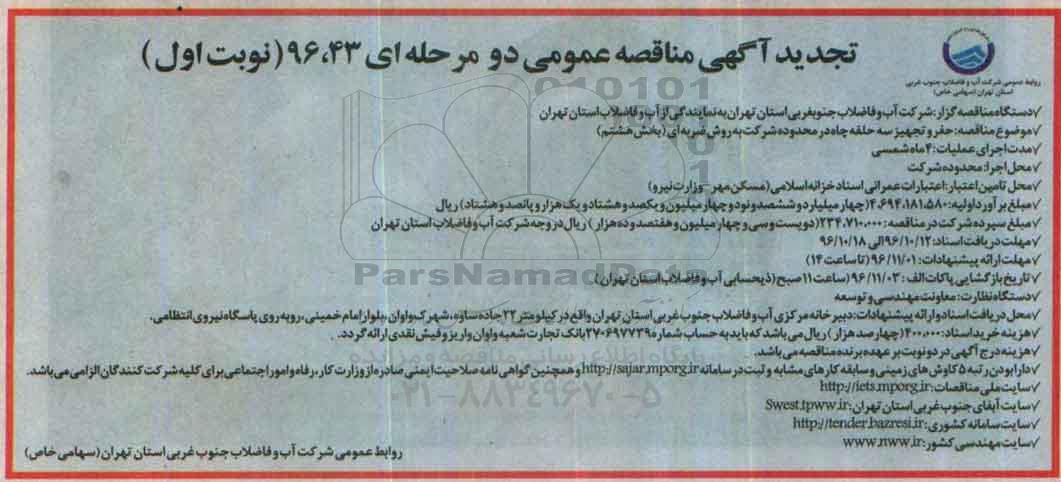 تجدید آگهی مناقصه عمومی دو مرحله ای ۹۶،۴۳ (نوبت اول)
روابط عمومی شرکت آب و فاضلاب جنوب غربی
استان تهران (سهامی خاص)
√دستگاه مناقصه گزار: شرکت آب و فاضلاب جنوبغربی استان تهران به نمایندگی از آب و فاضلاب استان تهران
√موضوع مناقصه: حفر و تجهیز سه حلقه چاه در محدوده شرکت به روش ضربه ای (بخش هشتم)
√مدت اجرای عملیات: ۴ ماه شمسی
√محل اجرا: محدوده شرکت
√محل تامین اعتبار: اعتبارات عمرانی اسناد خزانه اسلامی (مسکن مهر - وزارت نیرو)
√مبلغ برآورد اولیه: ۴،۶۹۴،۱۸۱،۵۸۰ (چهار میلیارد و ششصد و نود و چهار میلیون و یکصد و هشتاد و یک هزار و پانصد و هشتاد) ریال
√مبلغ سپرده شرکت در مناقصه: ۲۳۴،۷۱۰،۰۰۰ (دویست و سی و چهار میلیون و هفتصد و ده هزار) ریال در وجه شرکت آب و فاضلاب استان تهران
√مهلت دریافت اسناد: ۹۶/۱۰/۱۲ الی ۹۶/۱۰/۱۸
√مهلت ارائه پیشنهادات: ۹۶/۱۱/۰۱ (تا ساعت ۱۴)
√تاریخ بازگشایی پاکات الف: ۹۶/۱۱/۰۳ (ساعت ۱۱ صبح (ذیحسابی آب و فاضلاب استان تهران)
√دستگاه نظارت: معاونت مهندسی و توسعه
√محل دریافت اسناد و ارائه پیشنهادات: دبیرخانه مرکزی آب و فاضلاب جنوب غربی استان تهران واقع در کیلومتر ۲۲ جاده ساوه، شهرک واوان، بلوار امام خمینی، روبه روی پاسگاه نیروی انتظامی.
√هزینه خرید اسناد: ۴۰۰،۰۰۰ (چهارصد هزار) ریال می باشد که باید به حساب شماره ۲۷۰۶۹۷۷۳۹ بانک تجارت شعبه واوان واریز و فیش نقدی ارائه گردد.
√هزینه درج آگهی در دو نوبت بر عهده برنده مناقصه می باشد.
√دارا بودن رتبه ۵ کاوش های زمینی و سابقه کار های مشابه و ثبت در سامانه http://sajar.mporg.ir و همچنین گواهی نامه صلاحیت ایمنی صادره از وزارت کار، رفاه و امور اجتماعی برای کلیه شرکت کنندگان الزامی می باشد.
√سایت ملی مناقصات: http://iets.mporg.ir
√سایت آبفای جنوب غربی استان تهران: Swest.tpww.ir
√سایت سامانه کشوری: http://tender.bazresi.ir
√سایت مهندسی کشور: www.nww.ir
روابط عمومی شرکت آب و فاضلاب جنوب غربی استان تهران (سهامی خاص)
ParsNamadData
پایگاه اطلاع رسانی مناقصه و مزایده
۰۲۱-۸۸۳۴۹۶۷۰-۵